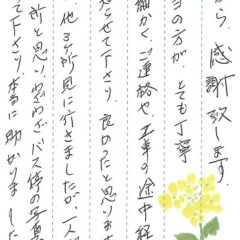 から、感謝致します。
当の方が、とても丁寧
細かくご連絡や、工事の途中経
らせて下さり、良かったと思います
、他3ヶ所見に行きましたが、一人
所と思い、わざわざバス停の写真
て下さり、本当に助かりました